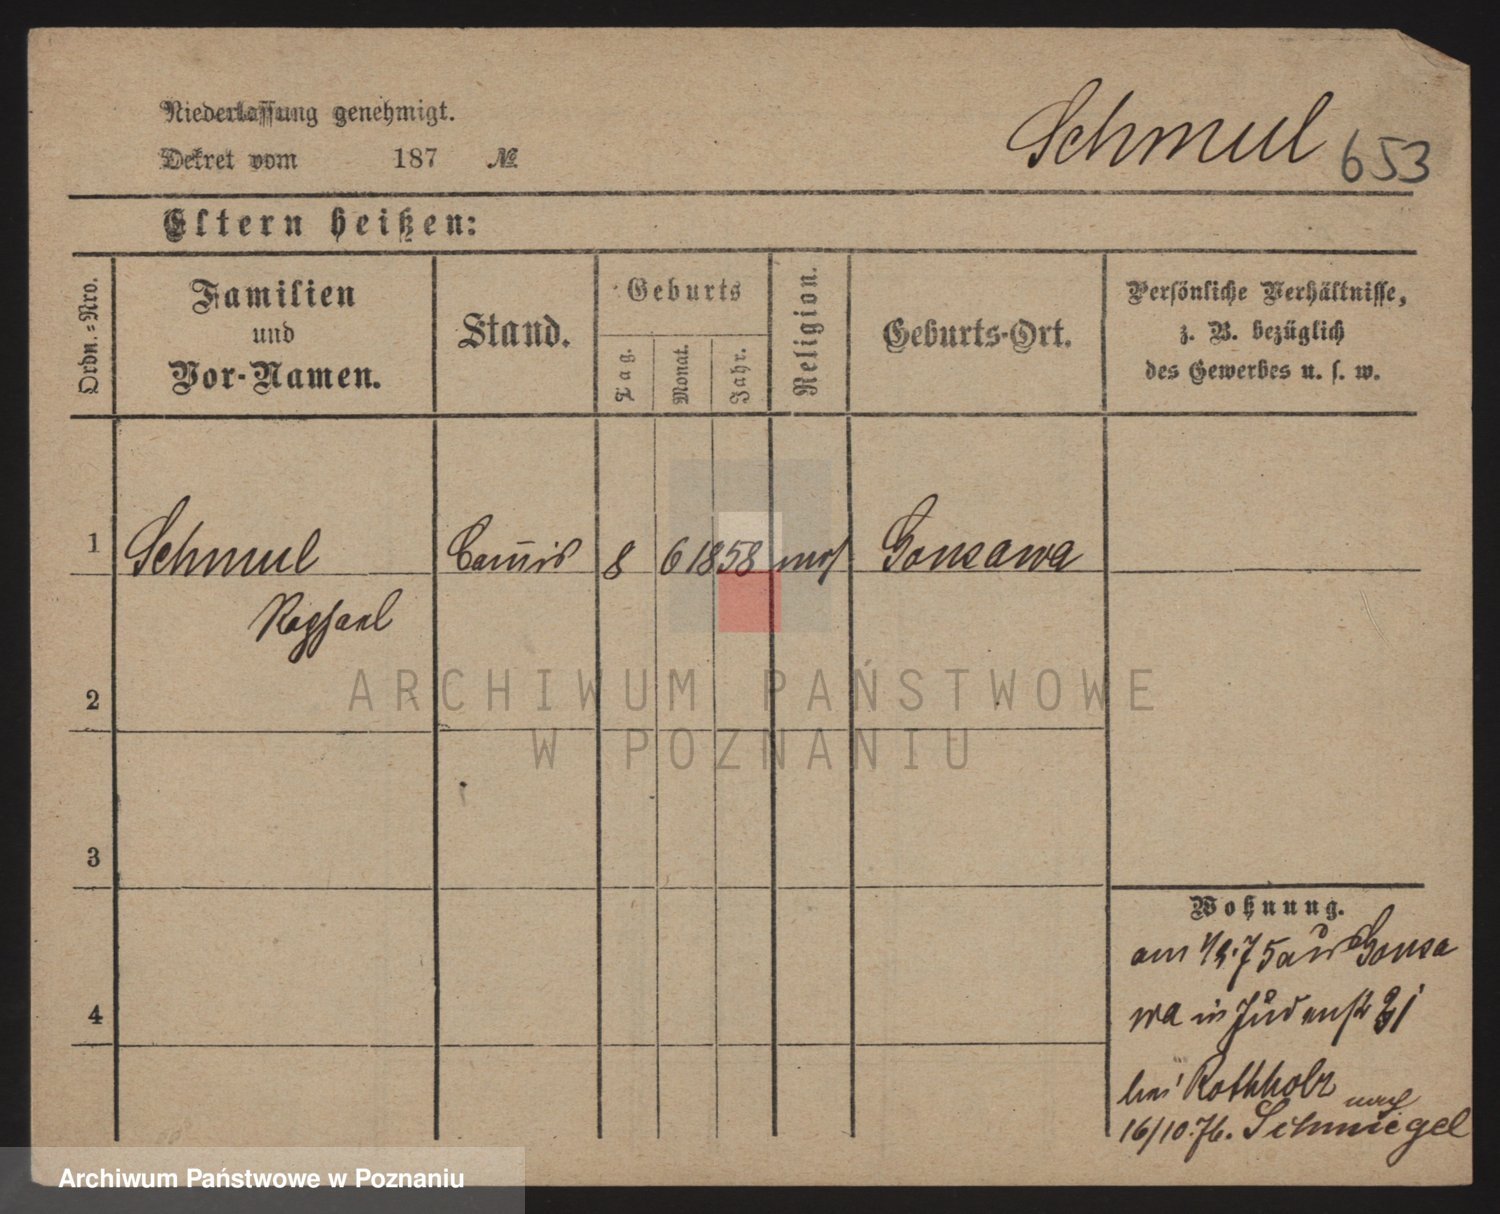 Niederlassung genehmigt.
Dekret vom 187 №
Schmul 653
Eltern heißen:
Ordn.-Nro.
Familien
und
Vor-Namen.
Stand.
Geburts
Tag.
Monat.
Jahr.
Religion.
Geburts-Ort.
Persönliche Verhältnisse,
z. B. bezüglich
des Gewerbes u. s. w.
1 Schmul Com̅is 8 6 1858 mos Gonsawa
Raphael
2
3
4
Wohnung.
am 75 aus Gonsa
wa in Judenstr 31
bei Rothholz
nach
16/10.76. Schmiegel
ARCHIWUM PAŃSTWOWE
W POZNANIU
Archiwum Państwowe w Poznaniu